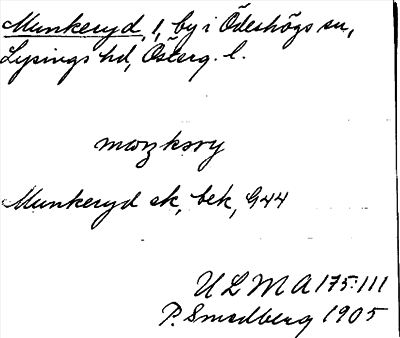 Munkeryd, 1, by i Ödeshögs sn,
Lysings hd, Österg. l.
Munkeryd sk, bek, G44
ULMA 175:111
P. Smedberg 1905